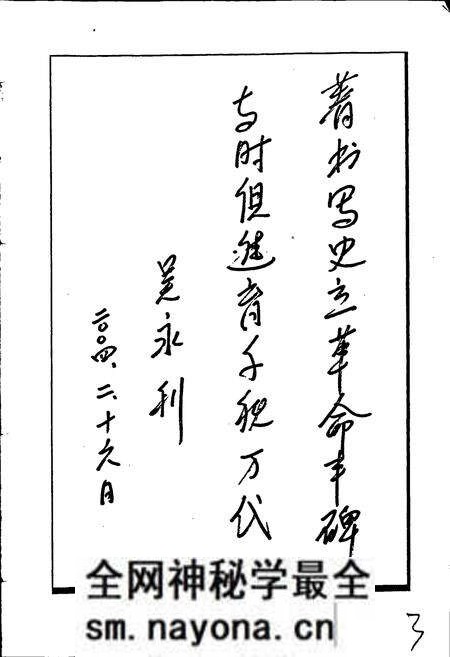 著书写史立革命丰碑
与时俱進育千秋万代
吴永利
二〇〇四、二、十六日
全网神秘学最全
sm.nayona.cn
3